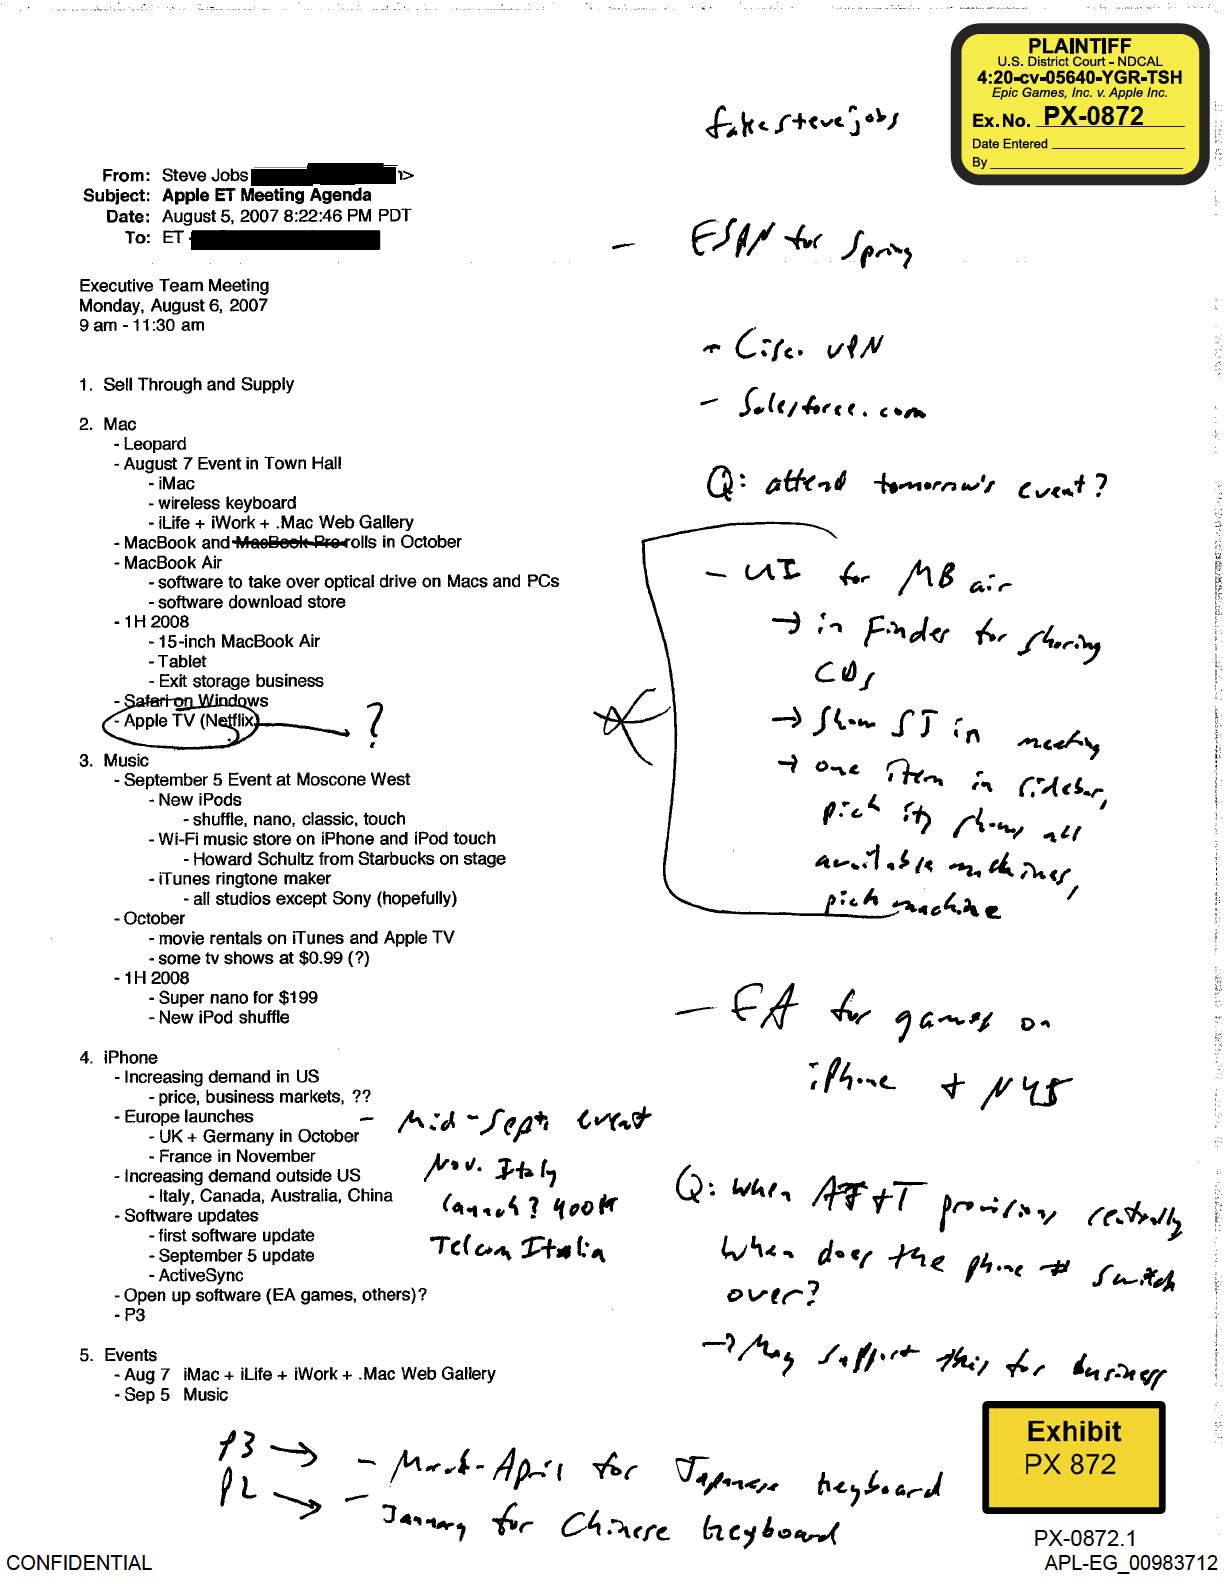 PLAINTIFF
U.S. District Court - NDCAL
4:20-cv-05640-YGR-TSH
Epic Games, Inc. v. Apple Inc.
Ex.No. PX-0872
Date Entered
By
fakestevejobs
From: Steve Jobs >
Subject: Apple ET Meeting Agenda
Date: August 5, 2007 8:22:46 PM PDT
To: ET
- ESPN for Spring
Executive Team Meeting
Monday, August 6, 2007
9 am - 11:30 am
- Cisco VPN
1. Sell Through and Supply
- Salesforce.com
2. Mac
- Leopard
- August 7 Event in Town Hall
- iMac
- wireless keyboard
- iLife + iWork + .Mac Web Gallery
- MacBook and MacBook Pro rolls in October
- MacBook Air
- software to take over optical drive on Macs and PCs
- software download store
- 1H 2008
- 15-inch MacBook Air
- Tablet
- Exit storage business
- Safari on Windows
- Apple TV (Netflix) ?
Q: attend tomorrow's event?
- UI for MB air
→ in Finder for sharing
CDs
→ Show SJ in meeting
→ one item in sidebar,
pick it, shows all
available machines,
pick machine
3. Music
- September 5 Event at Moscone West
- New iPods
- shuffle, nano, classic, touch
- Wi-Fi music store on iPhone and iPod touch
- Howard Schultz from Starbucks on stage
- iTunes ringtone maker
- all studios except Sony (hopefully)
- October
- movie rentals on iTunes and Apple TV
- some tv shows at $0.99 (?)
- 1H 2008
- Super nano for $199
- New iPod shuffle
- EA for games on
iPhone +
4. iPhone
- Increasing demand in US
- price, business markets, ??
- Europe launches
- UK + Germany in October
- France in November
- Increasing demand outside US
- Italy, Canada, Australia, China
- Software updates
- first software update
- September 5 update
- ActiveSync
- Open up software (EA games, others)?
- P3
- Mid-Sept. event
Nov. Italy
launch? 400M
Telcom Italia
Q: when AT+T provisions centrally
when does the phone # switch
over?
→ May support this for business
5. Events
- Aug 7 iMac + iLife + iWork + .Mac Web Gallery
- Sep 5 Music
P3 → - March-April for Japanese keyboard
P2 → - January for Chinese keyboard
Exhibit
PX 872
PX-0872.1
CONFIDENTIAL
APL-EG_00983712